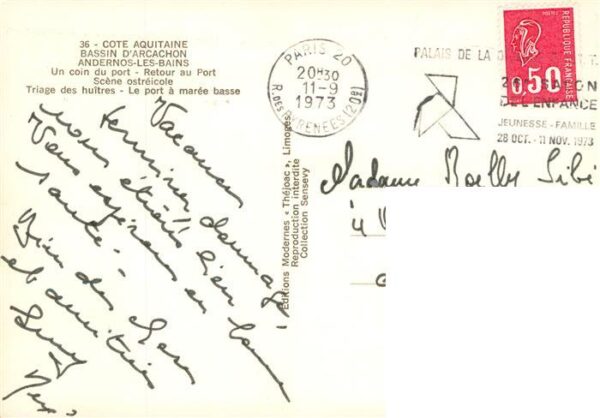 36 - COTE AQUITAINE
BASSIN D'ARCACHON
ANDERNOS-LES-BAINS
Un coin du port - Retour au Port
Scène ostréicole
Triage des huîtres - Le port à marée basse
Vacances
terminées dommage!
nous étions bien
Vous espérons en bonne
santé -
Bien des choses
et amitiés
Editions Modernes « Théojac », Limoges
Reproduction interdite
Collection Sensevy
PARIS 20
20H30
11-9
1973
R. DES PYRENEES (20E)
PALAIS DE LA
DE L'ENFANCE
JEUNESSE - FAMILLE
28 OCT. - 11 NOV. 1973
POSTES
REPUBLIQUE FRANÇAISE
0,50
Madame
à